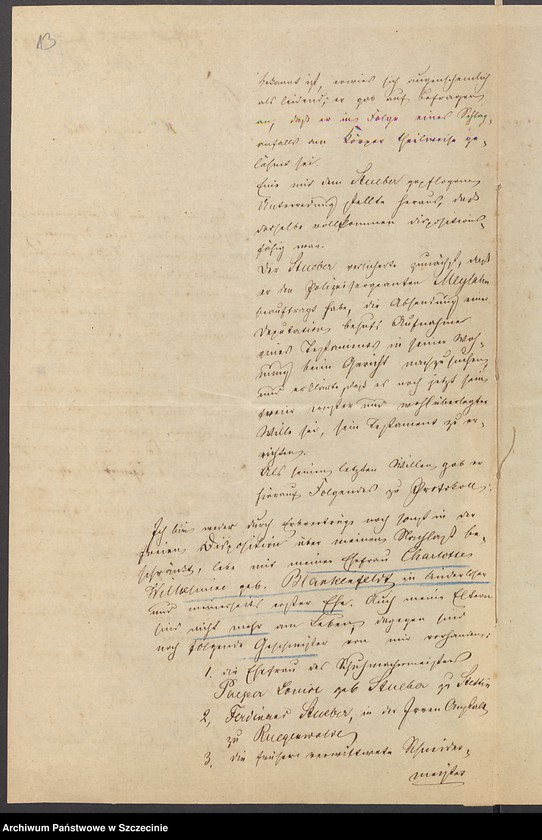 13
bekannt ist, erwies sich augenscheinlich
als leidend; er gab auf Befragen
an, daß er in Folge eines Schlag-
anfalls am Körper theilweise ge-
lähmt sei.
Eine mit dem Stueber gepflogene
Unterredung stellte heraus, daß
derselbe vollkommen dispositions-
fähig war.
Der Stueber versicherte zunächst, daß
er den Polizeisergeanten
beauftragt habe, die Absendung einer
Deputation behufs Aufnahme
eines Testaments in seiner Woh-
nung beim Gericht nachzusuchen
und erklärte, daß es noch jetzt sein
freier ernster und wohlüberlegter
Wille sei, sein Testament zu er-
richten.
Als seinen letzten Willen gab er
hierauf Folgendes zu Protokoll:
Ich bin weder durch Erbverträge noch sonst in der
freien Disposition über meinen Nachlaß be-
schränkt, lebe mit meiner Ehefrau Charlotte
Wilhelmine geb. Blankenfeldt in kinderloser
und meinerseits erster Ehe. Auch meine Eltern
sind nicht mehr am Leben, dagegen sind
noch folgende Geschwister von mir vorhanden:
1. die Ehefrau des Schuhmachermeisters
Paeper Louise geb Stueber zu Stettin
2, Ferdinand Stueber, in der Irren Anstalt
zu Ruegenwalde
3, die frühere verwittwete Schneider-
meister
Archiwum Państwowe w Szczecinie